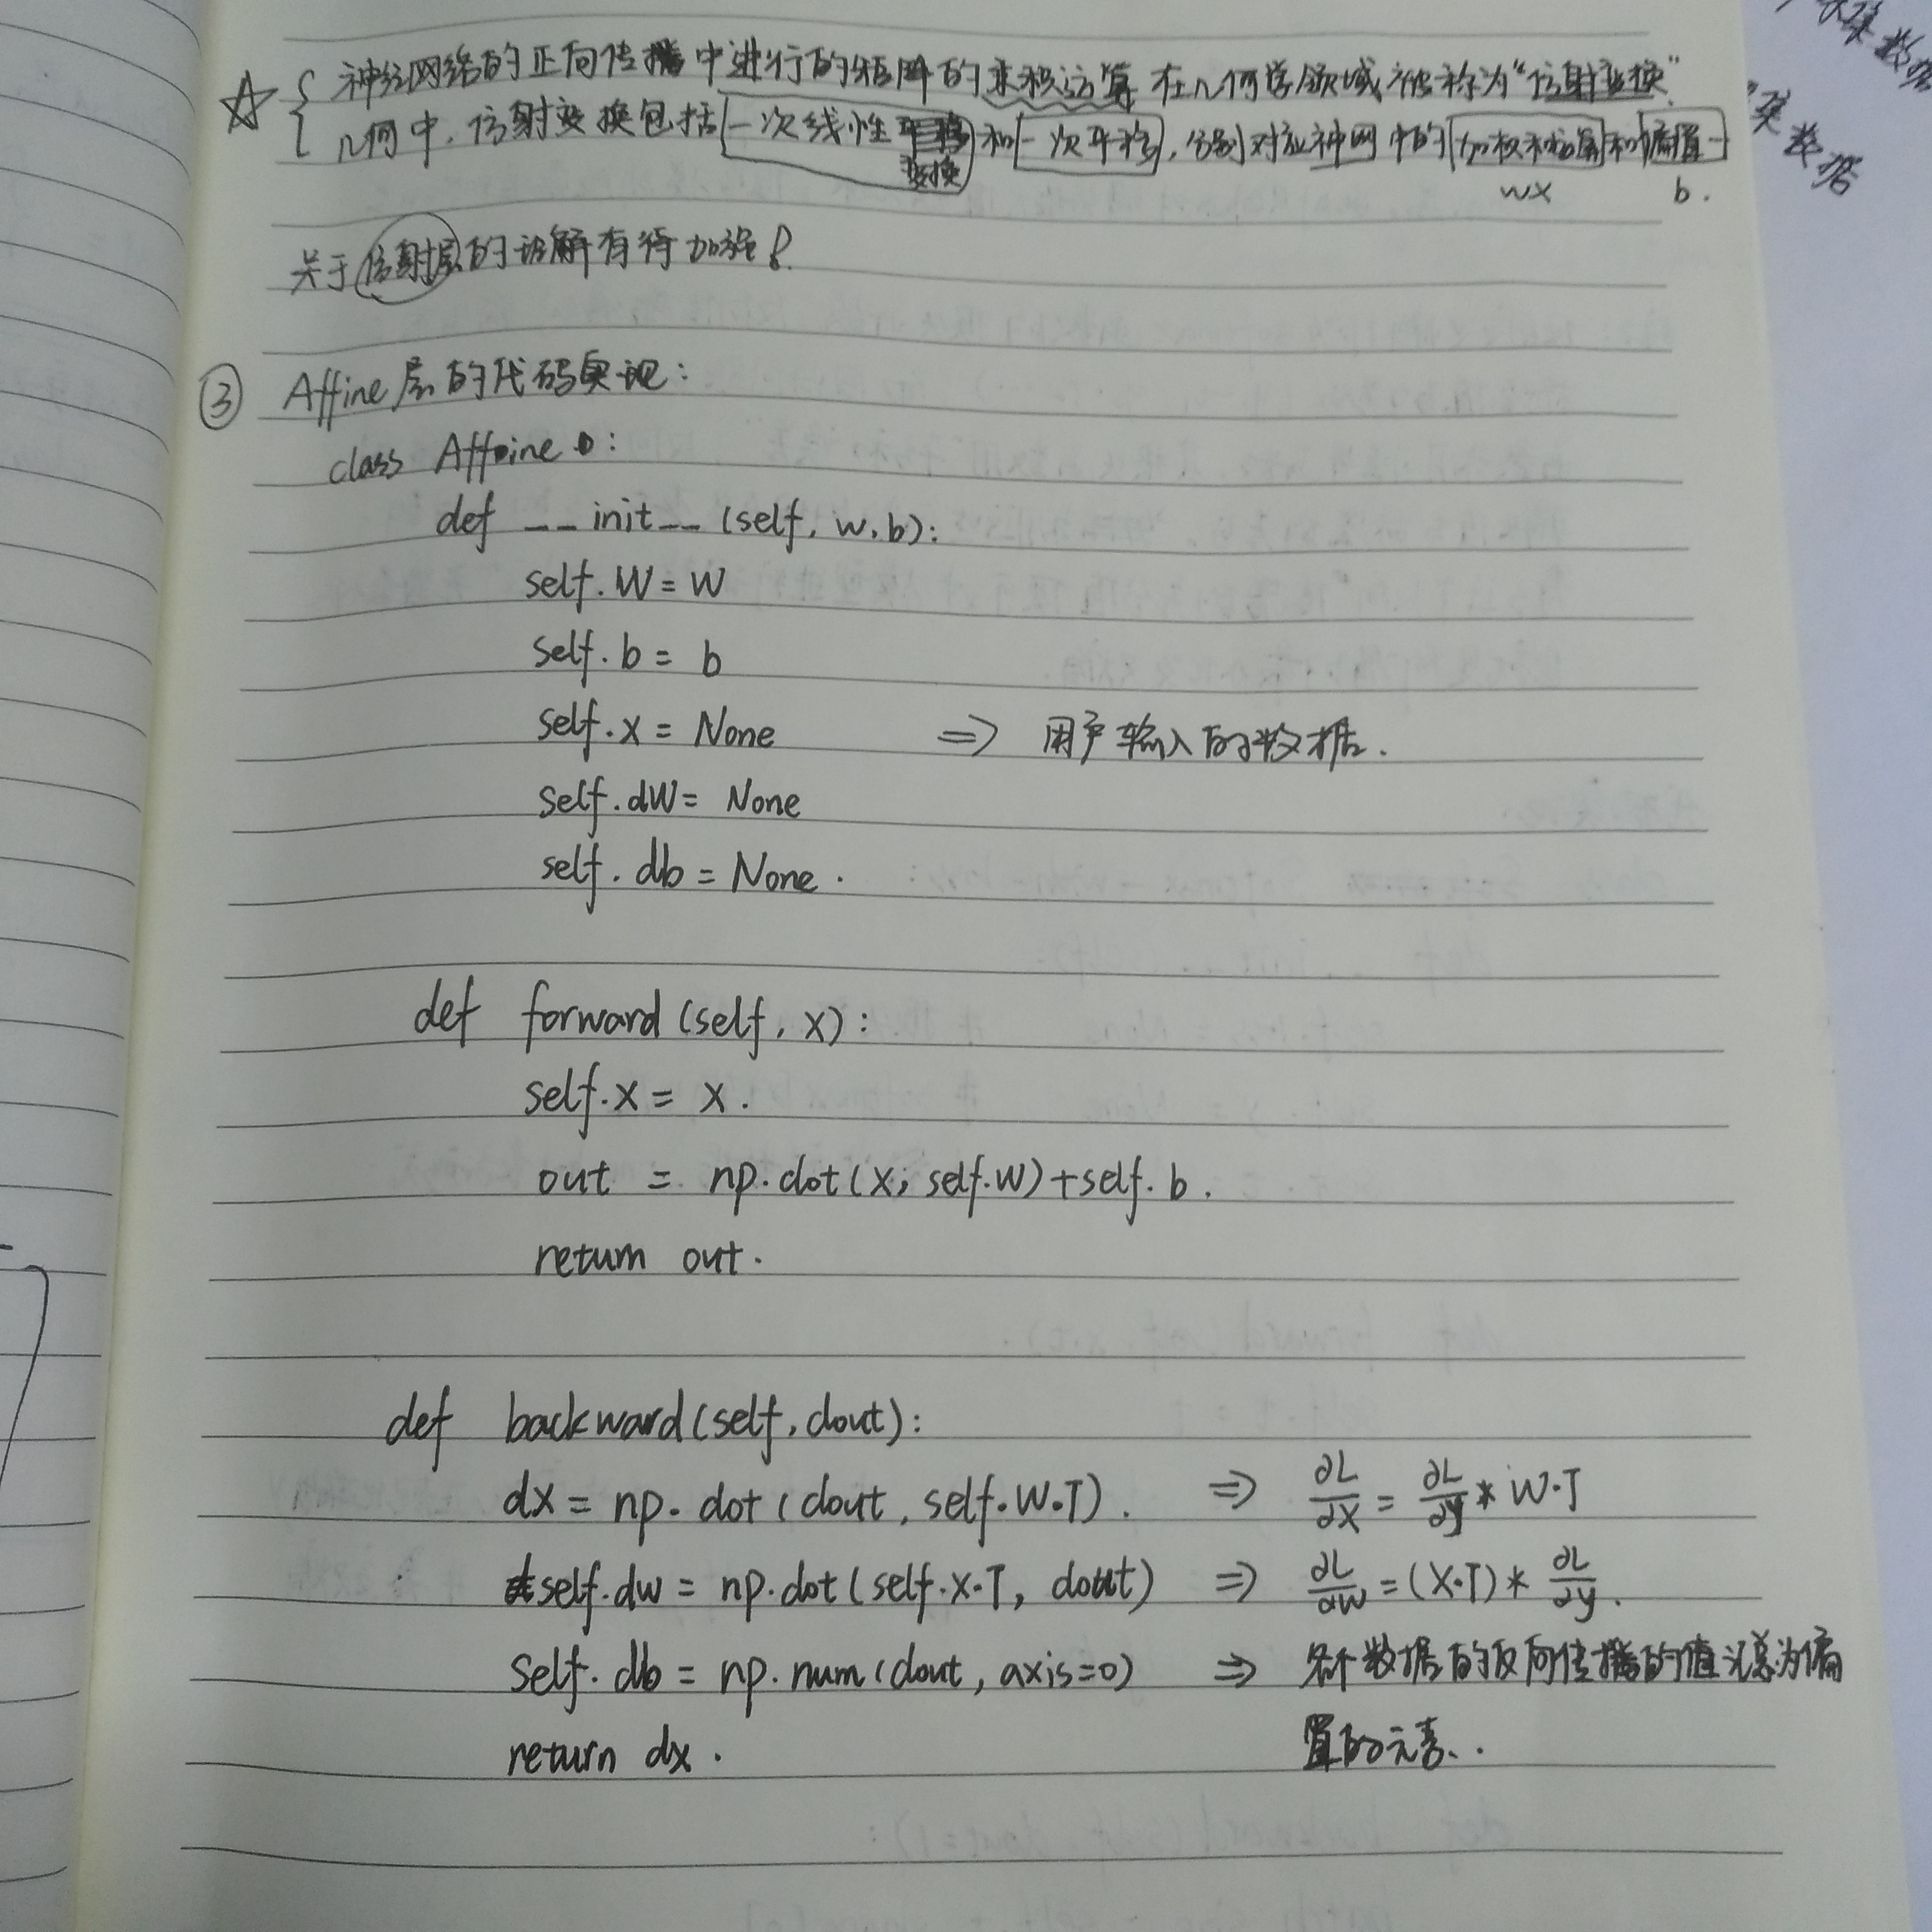 ☆ { 神经网络的正向传播中进行的矩阵的乘积运算在几何学领域被称为“仿射变换”
几何中,仿射变换包括一次线性变换和一次平移,分别对应神网中的加权和运算和偏置
wx b.
关于仿射层的误解有待加强!
③ Affine层的代码实现:
class Affine :
def __init__(self, w, b):
self.W = W
self.b = b
self.x = None ⇒ 用户输入的数据.
self.dW = None
self.db = None.
def forward(self, x):
self.x = x.
out = np.dot(x, self.W)+self.b.
return out.
def backward(self, dout):
dx = np.dot(dout, self.W.T). ⇒ ∂L/∂X = ∂L/∂y * W.T
self.dw = np.dot(self.x.T, dout) ⇒ ∂L/∂W = (X.T) * ∂L/∂y.
self.db = np.num(dout, axis=0) ⇒ 各个数据的反向传播的值汇总为偏
return dx. 置的元素..